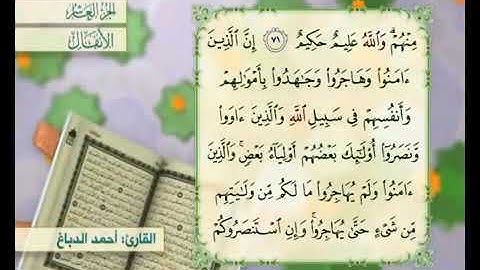 الجزء العاشر
الأنفال
مِنْهُمْ ۗ وَاللَّهُ عَلِيمٌ حَكِيمٌ ﴿٧١﴾ إِنَّ الَّذِينَ
ءَامَنُوا۟ وَهَاجَرُوا۟ وَجَـٰهَدُوا۟ بِأَمْوَٰلِهِمْ
وَأَنفُسِهِمْ فِى سَبِيلِ اللَّهِ وَالَّذِينَ ءَاوَوا۟
وَّنَصَرُوٓا۟ أُو۟لَـٰٓئِكَ بَعْضُهُمْ أَوْلِيَآءُ بَعْضٍ ۚ وَالَّذِينَ
ءَامَنُوا۟ وَلَمْ يُهَاجِرُوا۟ مَا لَكُم مِّن وَلَـٰيَتِهِم
مِّن شَىْءٍ حَتَّىٰ يُهَاجِرُوا۟ ۚ وَإِنِ اسْتَنصَرُوكُمْ
القارئ: أحمد الدباغ